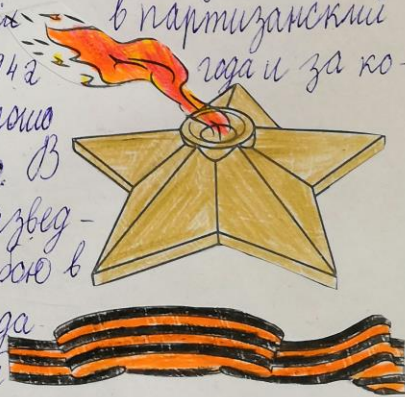 в партизански
942 года и за ко-
ошо
В
звед-
бою в
да